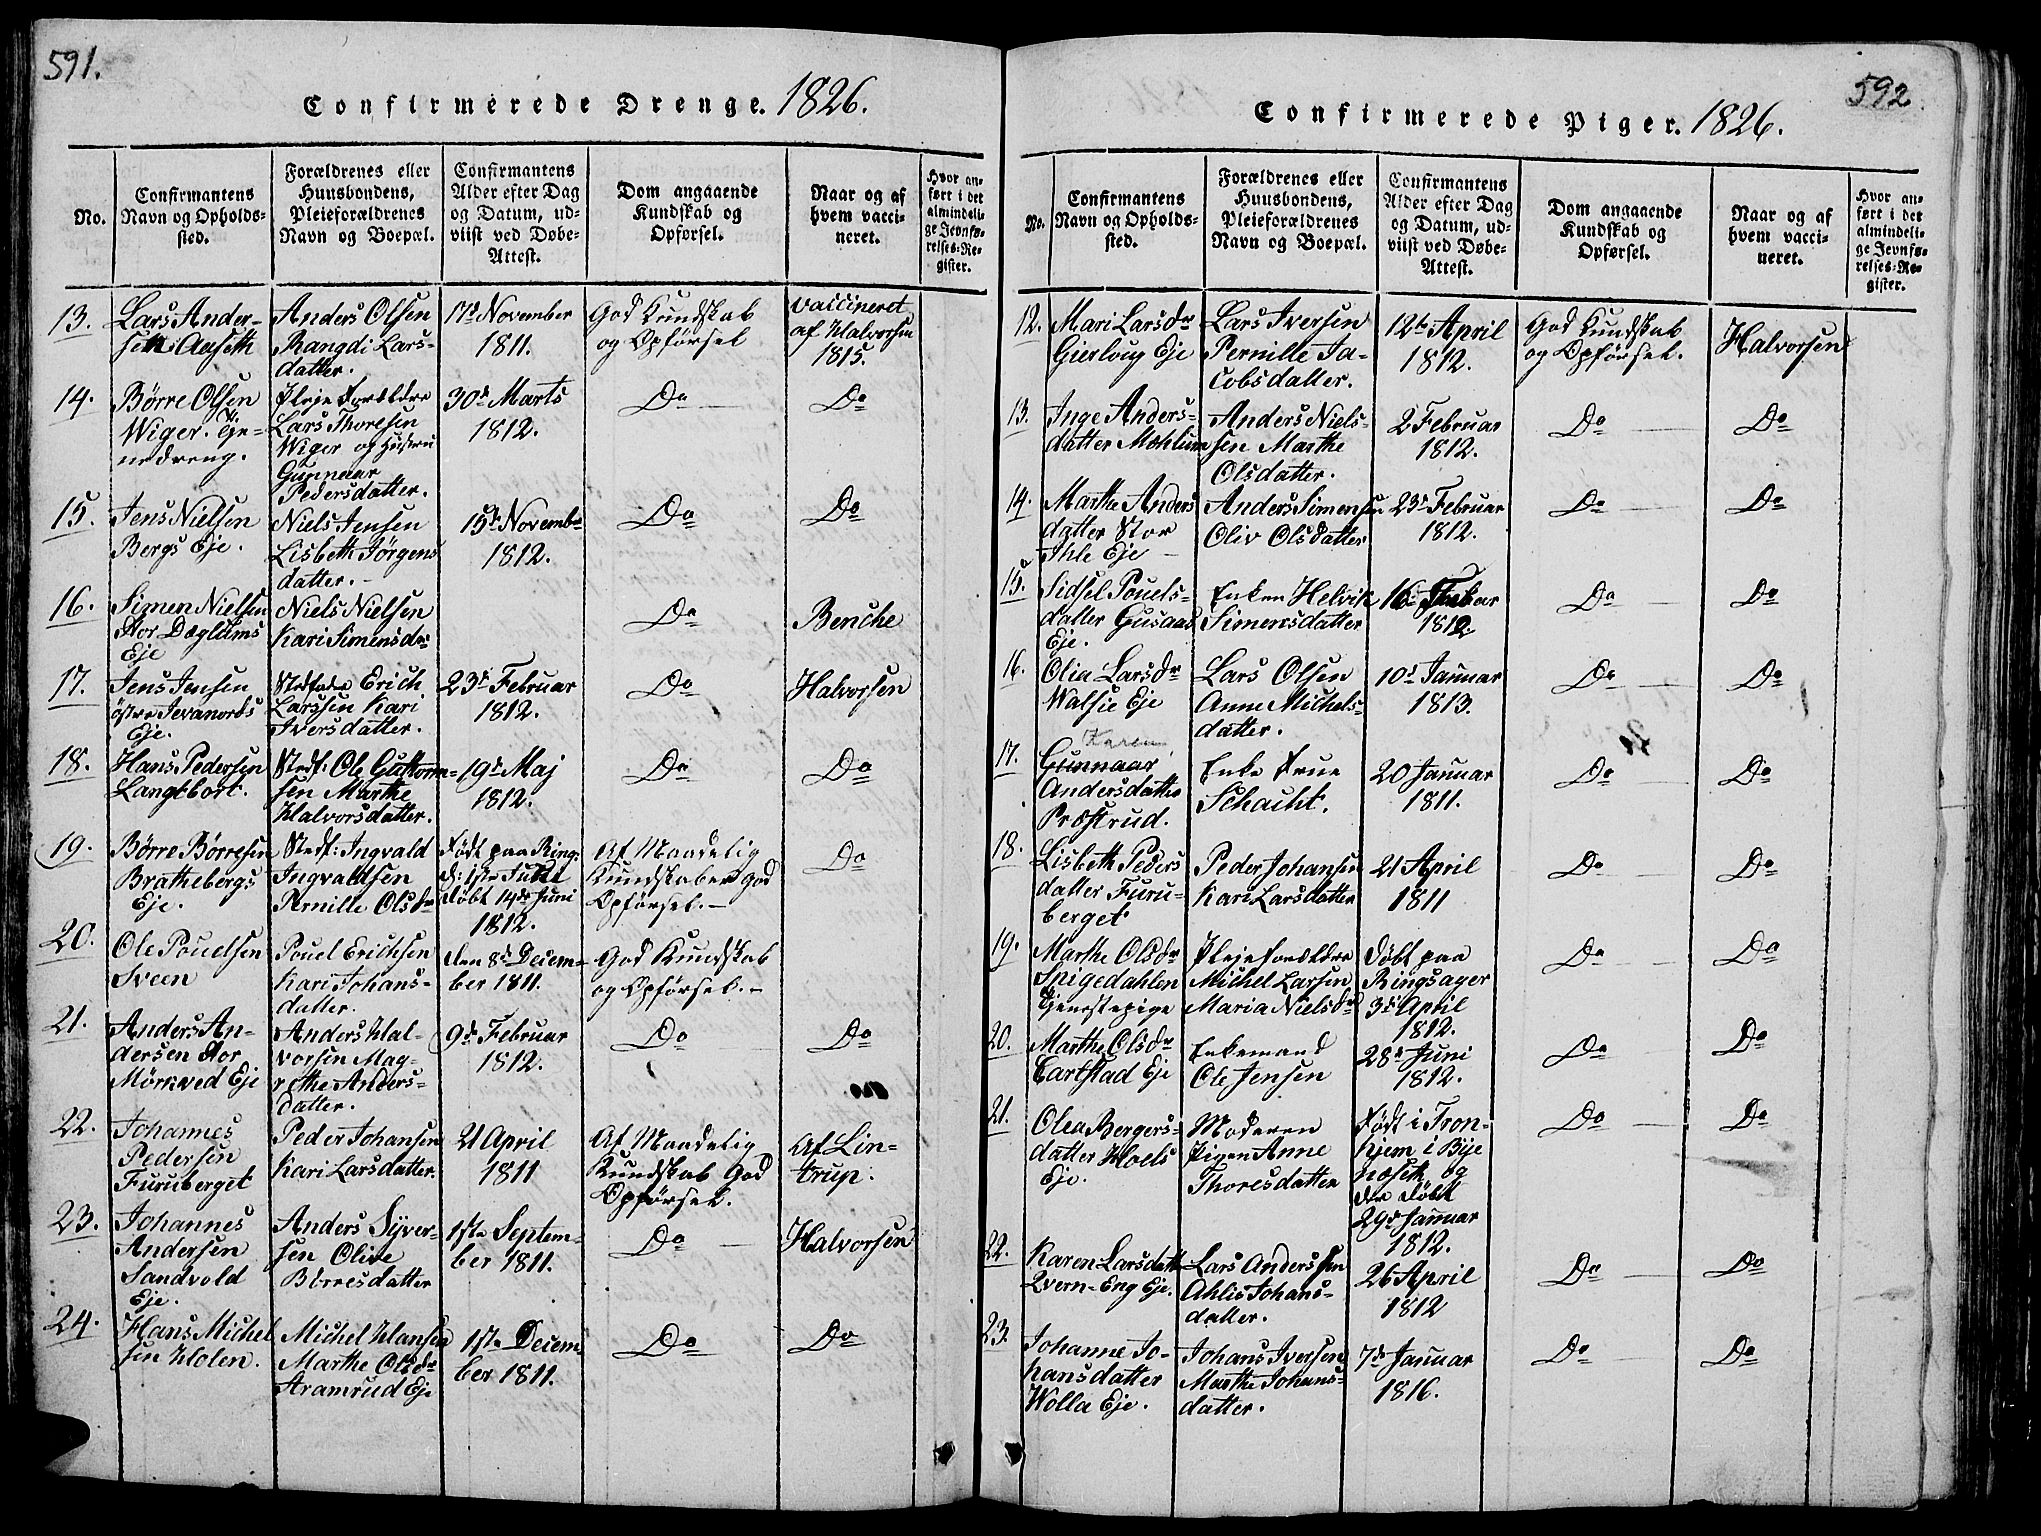 591.
Confirmerede Drenge. 1826.
No.
Confirmantens
Navn og Opholds-
sted.
Forældrenes eller
Huusbondens,
Pleieforældrenes
Navn og Boepæl.
Confirmantens
Alder efter Dag
og Datum, ud-
viist ved Døbe-
Attest.
Dom angaaende
Kundskab og
Opførsel.
Naar og af
hvem vacci-
neret.
Hvor an-
ført i det
almindeli-
ge Jevnfø-
relses-Re-
gister.
13.
Lars Ander-
sen Aaseth
Anders Olsen
Rangdi Lars-
datter.
17de November
1811.
God Kundskab
og Opførsel
vaccineret
af Halvorsen
1815.
14.
Börre Olsen
Wiger. Tje-
nedreng.
Pleje Forældre
Lars Thoresen
Wiger og Hustru
Gunnaar
Pedersdatter.
30de Marts
1812.
Do
Do
15.
Jens Nielsen
Bergs Eje.
Niels Jensen
Lisbeth Jörgens
datter.
15de Novemb-
1812.
Do
Do
16.
Simen Nielsen
Stor Dæglums
Eje
Niels Nielsen
Kari Simensdr
Do
Benche
17.
Jens Jensen
östre Jevanords
Eje.
Stedfader Erich
Larssen Kari
Iversdatter.
23de Februar
1812.
Do
Halvorsen
18.
Hans Pedersen
Langtbort.
Stedf: Ole Guttorm-
sen Marthe
Halvorsdatter.
19de Maj
1812.
Do
Do
19.
Börre Börresen
Brathebergs
Eje.
Stedf: Ingvald
Ingvaldsen
Pernille Olsdr
Födt paa Ring:
d: 1ste Juni
döbt 14de Juni
1812.
Af Maadelig
Kundskaber God
Opförsel.
Do
20.
Ole Pouelsen
Sveen
Pouel Erichsen
Kari Johans-
datter.
den 8de Decem-
ber 1811.
God Kundskab
og Opförsel.
21.
Anders An-
dersen Stor
Mörkved Eje
Anders Hal-
vorsen Mag-
rethe Anders-
datter.
9de Februar
1812.
Do
Do
22.
Johannes
Pedersen
Furuberget
Peder Johansen
Kari Larsdatter.
21 April
1811
Af Maadelig
Kundskab God
Opförsel.
Af Lin-
trup.
23.
Johannes
Andersen
Sandvold
Eje.
Anders Syver-
sen Olive
Börresdatter
1ste Septem-
ber 1811.
Do
Halvorsen
24.
Hans Michel
sen Holen.
Michel Hansen
Marthe Olsdr
Aramrud Eje
1ste Decem-
ber 1811.
Do
Do
592.
Confirmerede Piger. 1826.
No.
Confirmantens
Navn og Opholds-
sted.
Forældrenes eller
Huusbondens,
Pleieforældrenes
Navn og Boepæl.
Confirmantens
Alder efter Dag
og Datum, ud-
viist ved Døbe-
Attest.
Dom angaaende
Kundskab og
Opførsel.
Naar og af
hvem vacci-
neret.
Hvor an-
ført i det
almindeli-
ge Jevnfø-
relses-Re-
gister.
12.
Mari Larsdr
Gierloug Eje
Lars Iversen
Pernille Ja-
cobsdatter.
12te April
1812.
God Kundskab
og Opförsel.
Halvorsen
13.
Inge Anders-
datter Mæhlum
Anders Niels-
sen Marthe
Olsdatter.
2 Februar
1812.
Do
Do
14.
Marthe Anders
datter Stor
Ihle Eje
Anders Simensen
Oliv Olsdatter
23de Februar
1812.
Do
Do
15.
Sidsel Pouels-
datter Gusaas
Eje.
Enken Helvik
Simensdatter
16de
1812.
Do
Do
16.
Olia Larsdr
Walsie Eje
Lars Olsen
Anne Michels-
datter.
10de Januar
1813.
Do
Do
17.
Karen
Gunnaar
Andersdatter
Præstrud.
Enke Frue
Schacht.
20 Januar
1811.
Do
Do
18.
Lisbeth Peders
datter Furu-
berget
Peder Johansen
Kari Larsdatter
21 April
1811
Do
Do
19.
Marthe Olsdr
Spigedahlen
Tjenstepige
Plejeforældre
Michel Larsen
Maria Nielsdr
Döbt paa
Ringsager
3de April
1812.
Do
Do
20.
Marthe Olsdr
Carlstad Eje
Enkemand
Ole Jensen
28de Juni
1812.
Do
Do
21.
Olea Bergers-
datter Hoels
Eje.
Moderen
Pigen Anne
Thoresdatter
Födt i Tron-
hjem i Bye
næset og
der döbt
29de Januar
1812.
Do
Do
22.
Karen Larsdatt
Qvern-Eng Eje.
Lars Anderssen
Ahlis Johans-
datter.
26 April
1812
Do
Do
23.
Johanne Jo-
hansdatter
Wolla Eje.
Johans Iversen
Marthe Johans-
datter.
7de Januar
1816.
Do
Do